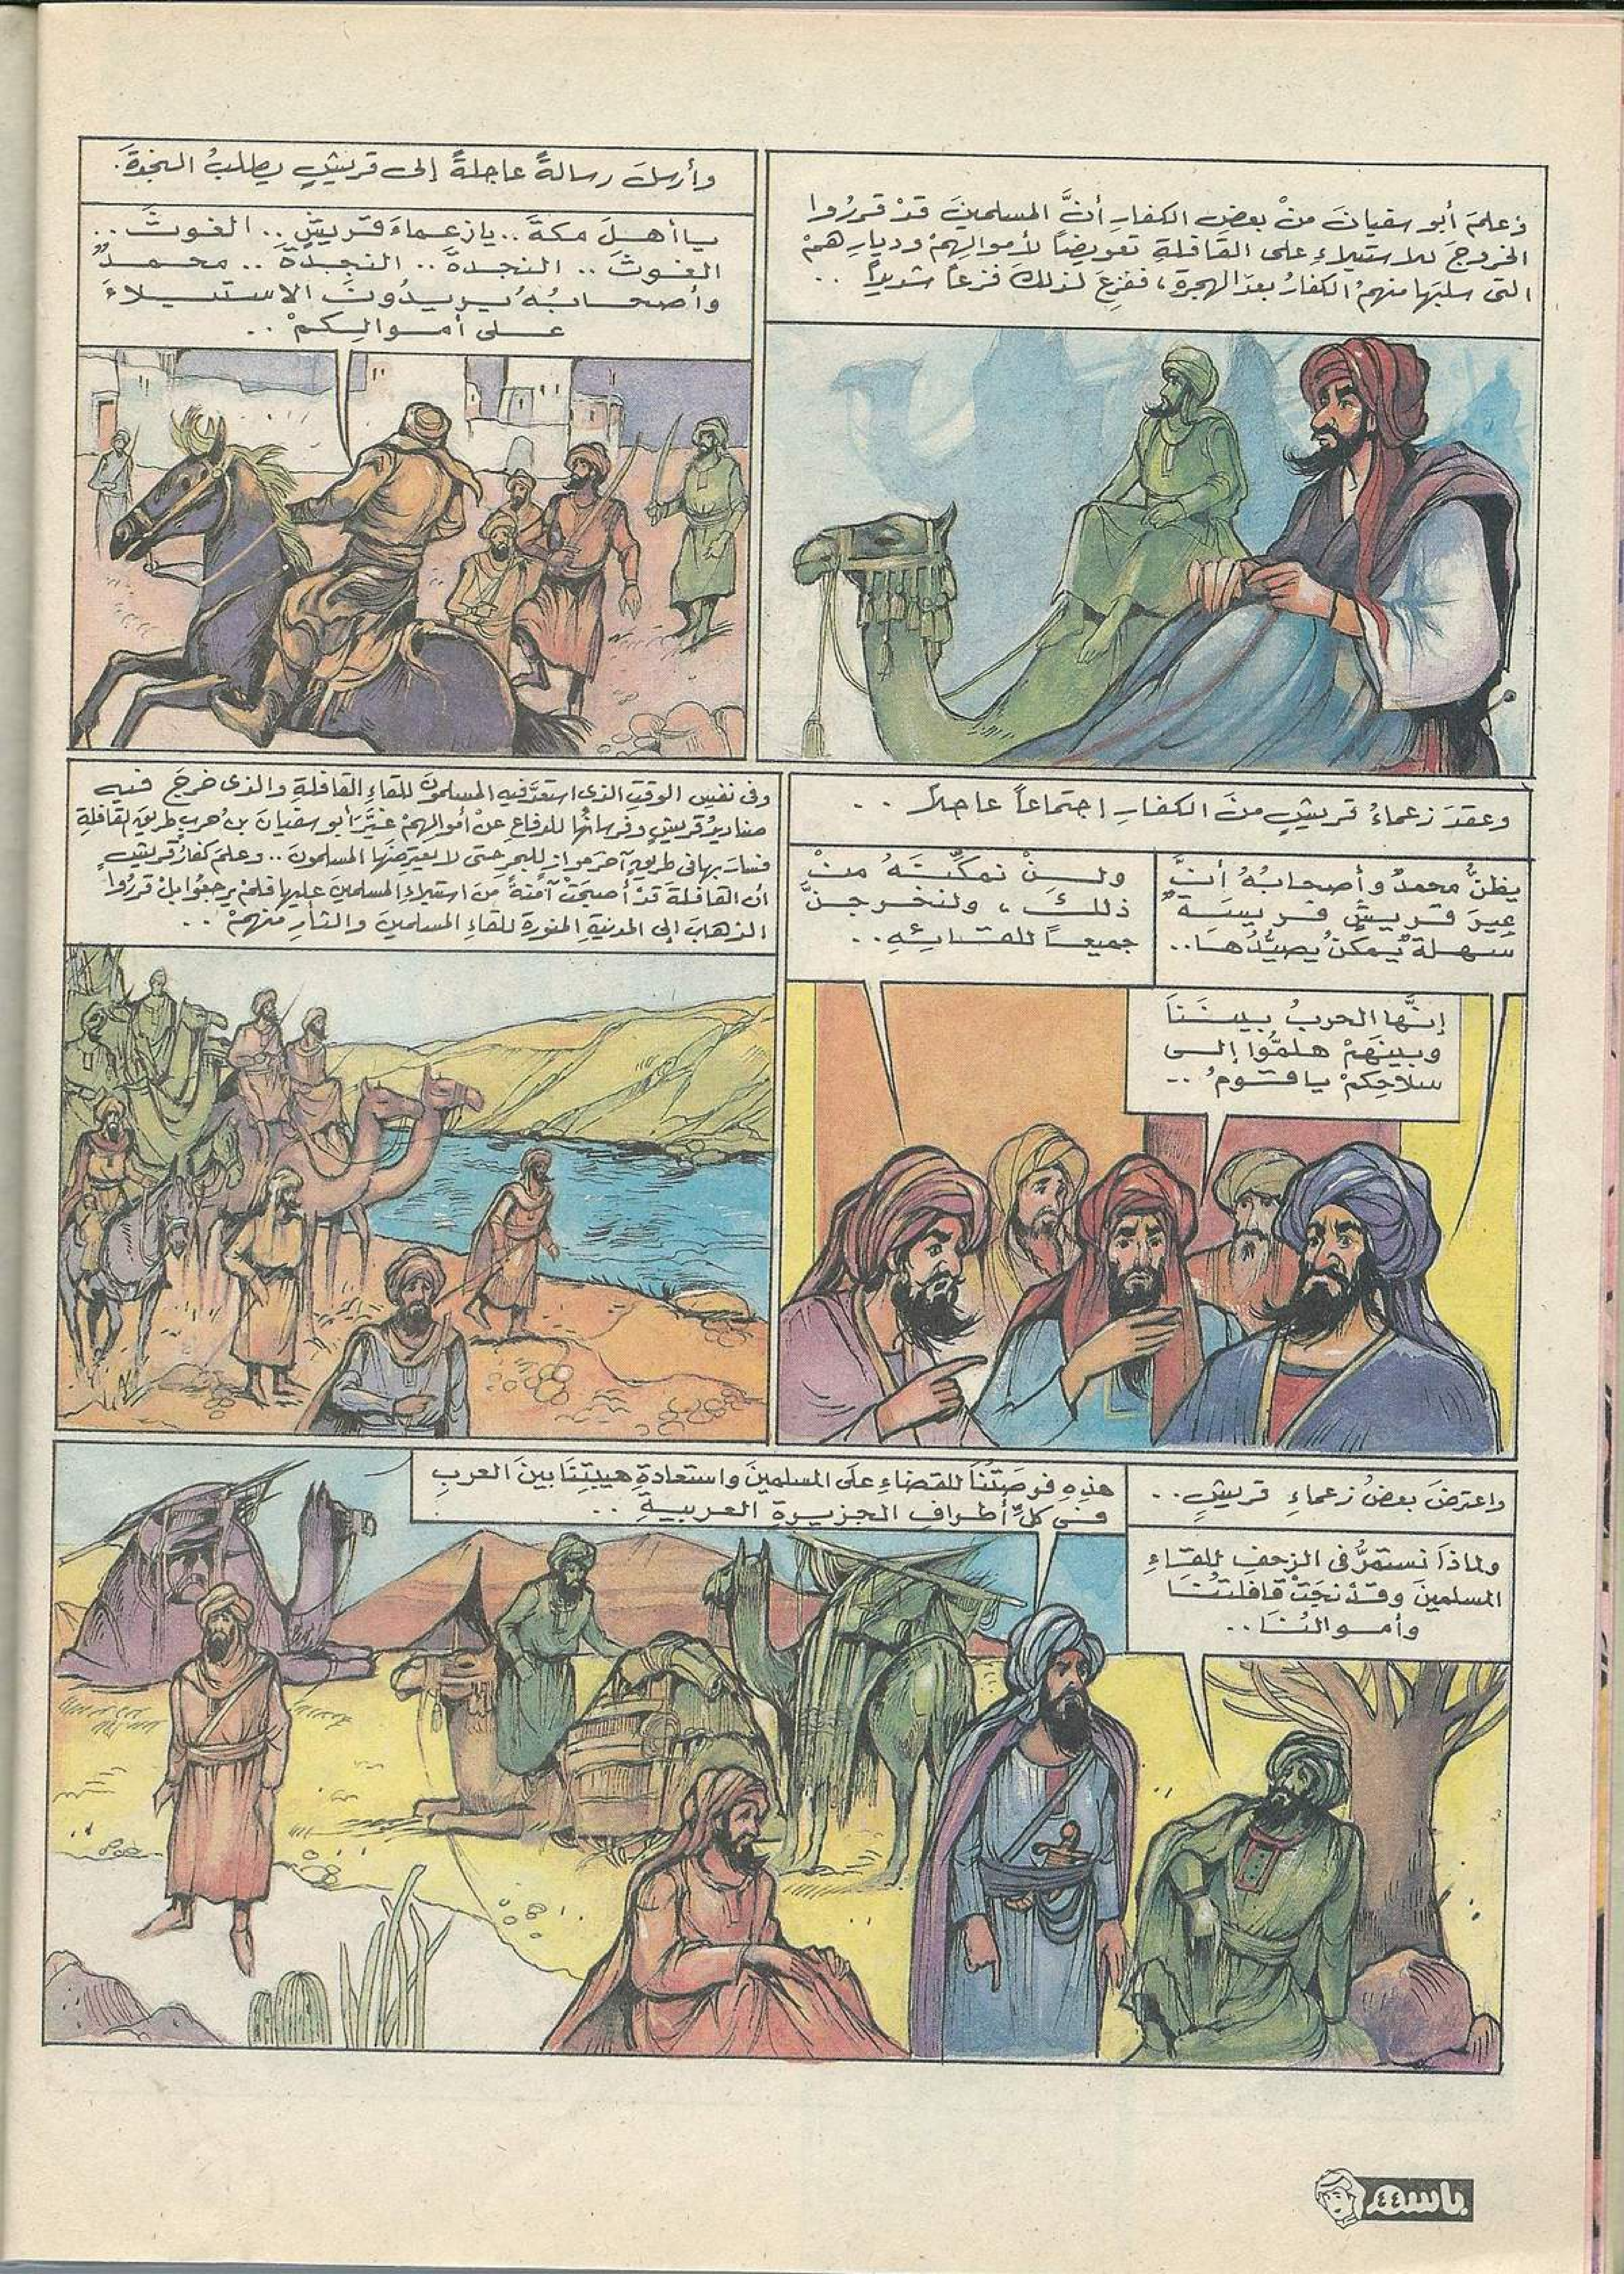 وعلمَ أبو سفيانَ منْ بعضِ الكفارِ أنَّ المسلمينَ قدْ قررُوا
الخروجَ للاستيلاءِ على القافلةِ تعويضاً لأموالِهِمْ وديارِهمْ
التى سلبَها منهمُ الكفارُ بعدَ الهجرةِ، ففزِعَ لذلكَ فزعاً شديداً ..
وأرسلَ رسالةً عاجلةً إلى قريشٍ يطلبُ النجدةَ.
يا أهلَ مكةَ .. يا زعماءَ قريشٍ .. الغوثَ ..
الغوثَ .. النجدةَ .. النجدةَ .. محمدٌ
وأصحابُهُ يريدُونَ الاستيلاءَ
على أموالِكمْ ..
وعقدَ زعماءُ قريشٍ منَ الكفارِ اجتماعاً عاجلاً ..
يظنُّ محمدٌ وأصحابُهُ أنَّ
عِيرَ قريشٍ فريسَةٌ
سهلةٌ يُمكنُ يصيُّدُها ..
ولنْ نمكِّنَهُ منْ
ذلكَ، ولنخرجنَّ
جميعاً للقائِهِ ..
إنَّها الحربُ بيننَا
وبينَهمْ هلمُّوا إلى
سلاحِكمْ يا قومُ ..
وفى نفسِ الوقتِ الذى استعدَّ فيهِ المسلمونَ للقاءِ القافلةِ والذى خرجَ فيهِ
صناديدُ قريشٍ وفرسانُها للدفاعِ عنْ أموالِهمْ غيَّرَ أبو سفيانَ بن حربٍ طريقَ القافلةِ
فسارَ بها فى طريقٍ آخرَ موازٍ للبحرِ حتى لا يعترضَها المسلمونَ .. وعلمَ كفارُ قريشٍ
أن القافلةَ قدْ أصبحتْ آمنةً منَ استيلاءِ المسلمينَ عليها فلمْ يرجعُوا بلْ قررُوا
الذهابَ إلى المدينةِ المنورةِ للقاءِ المسلمينَ والثأرِ منهمْ ..
واعترضَ بعضُ زعماءِ قريشٍ ..
ولماذَا نستمرُّ فى الزحفِ للقاءِ
المسلمينَ وقدْ نجَتْ قافلتُنَا
وأموالُنَا ..
هذِهِ فرصَتُنَا للقضاءِ علَى المسلمينَ واستعادةِ هيبتِنَا بينَ العربِ
فى كلِّ أطرافِ الجزيرةِ العربيةِ ..
باسم